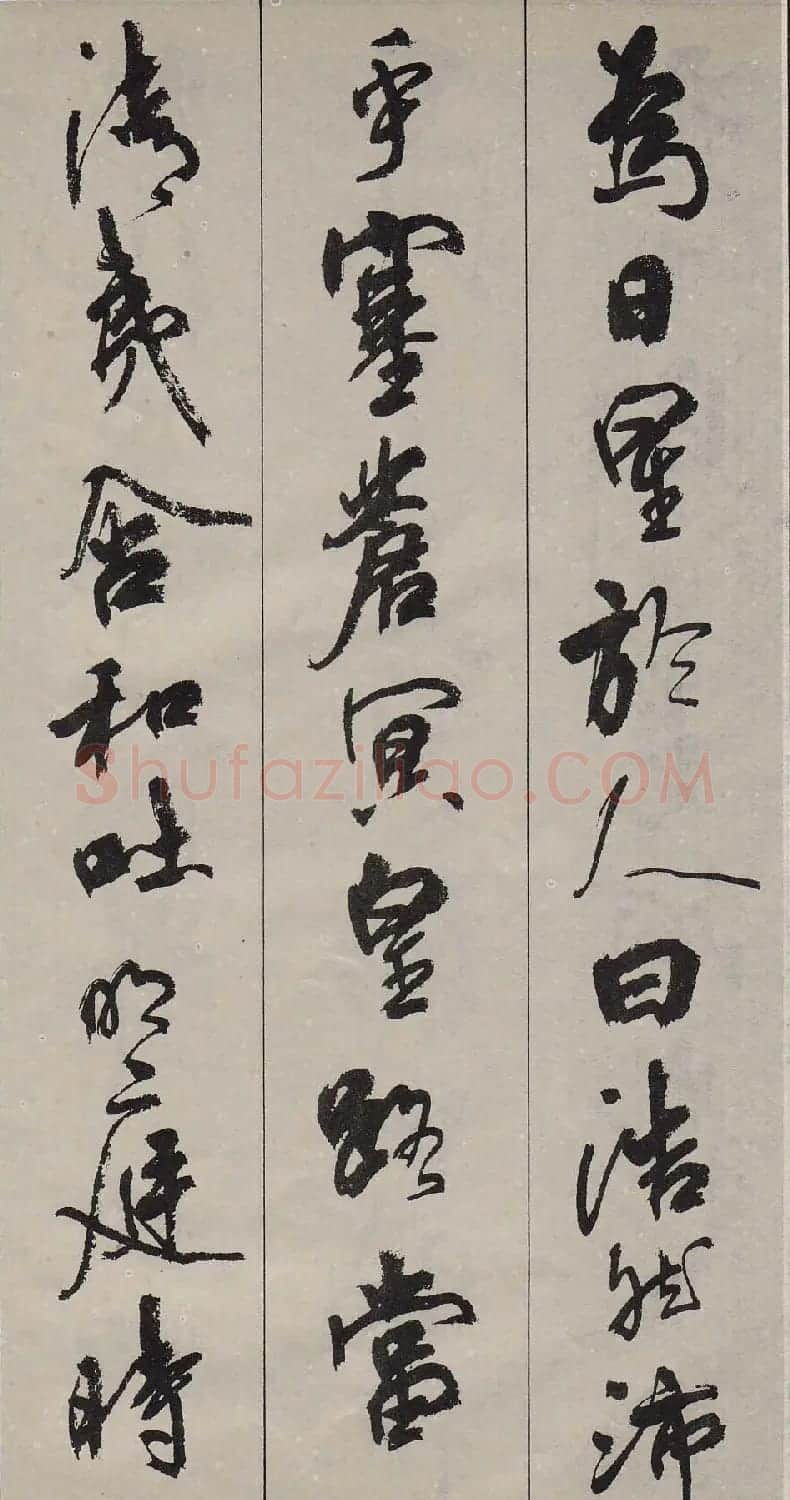 為日星於人曰浩然沛
乎塞蒼冥皇路當
清夷含和吐明庭時
Shufaziliao.COM